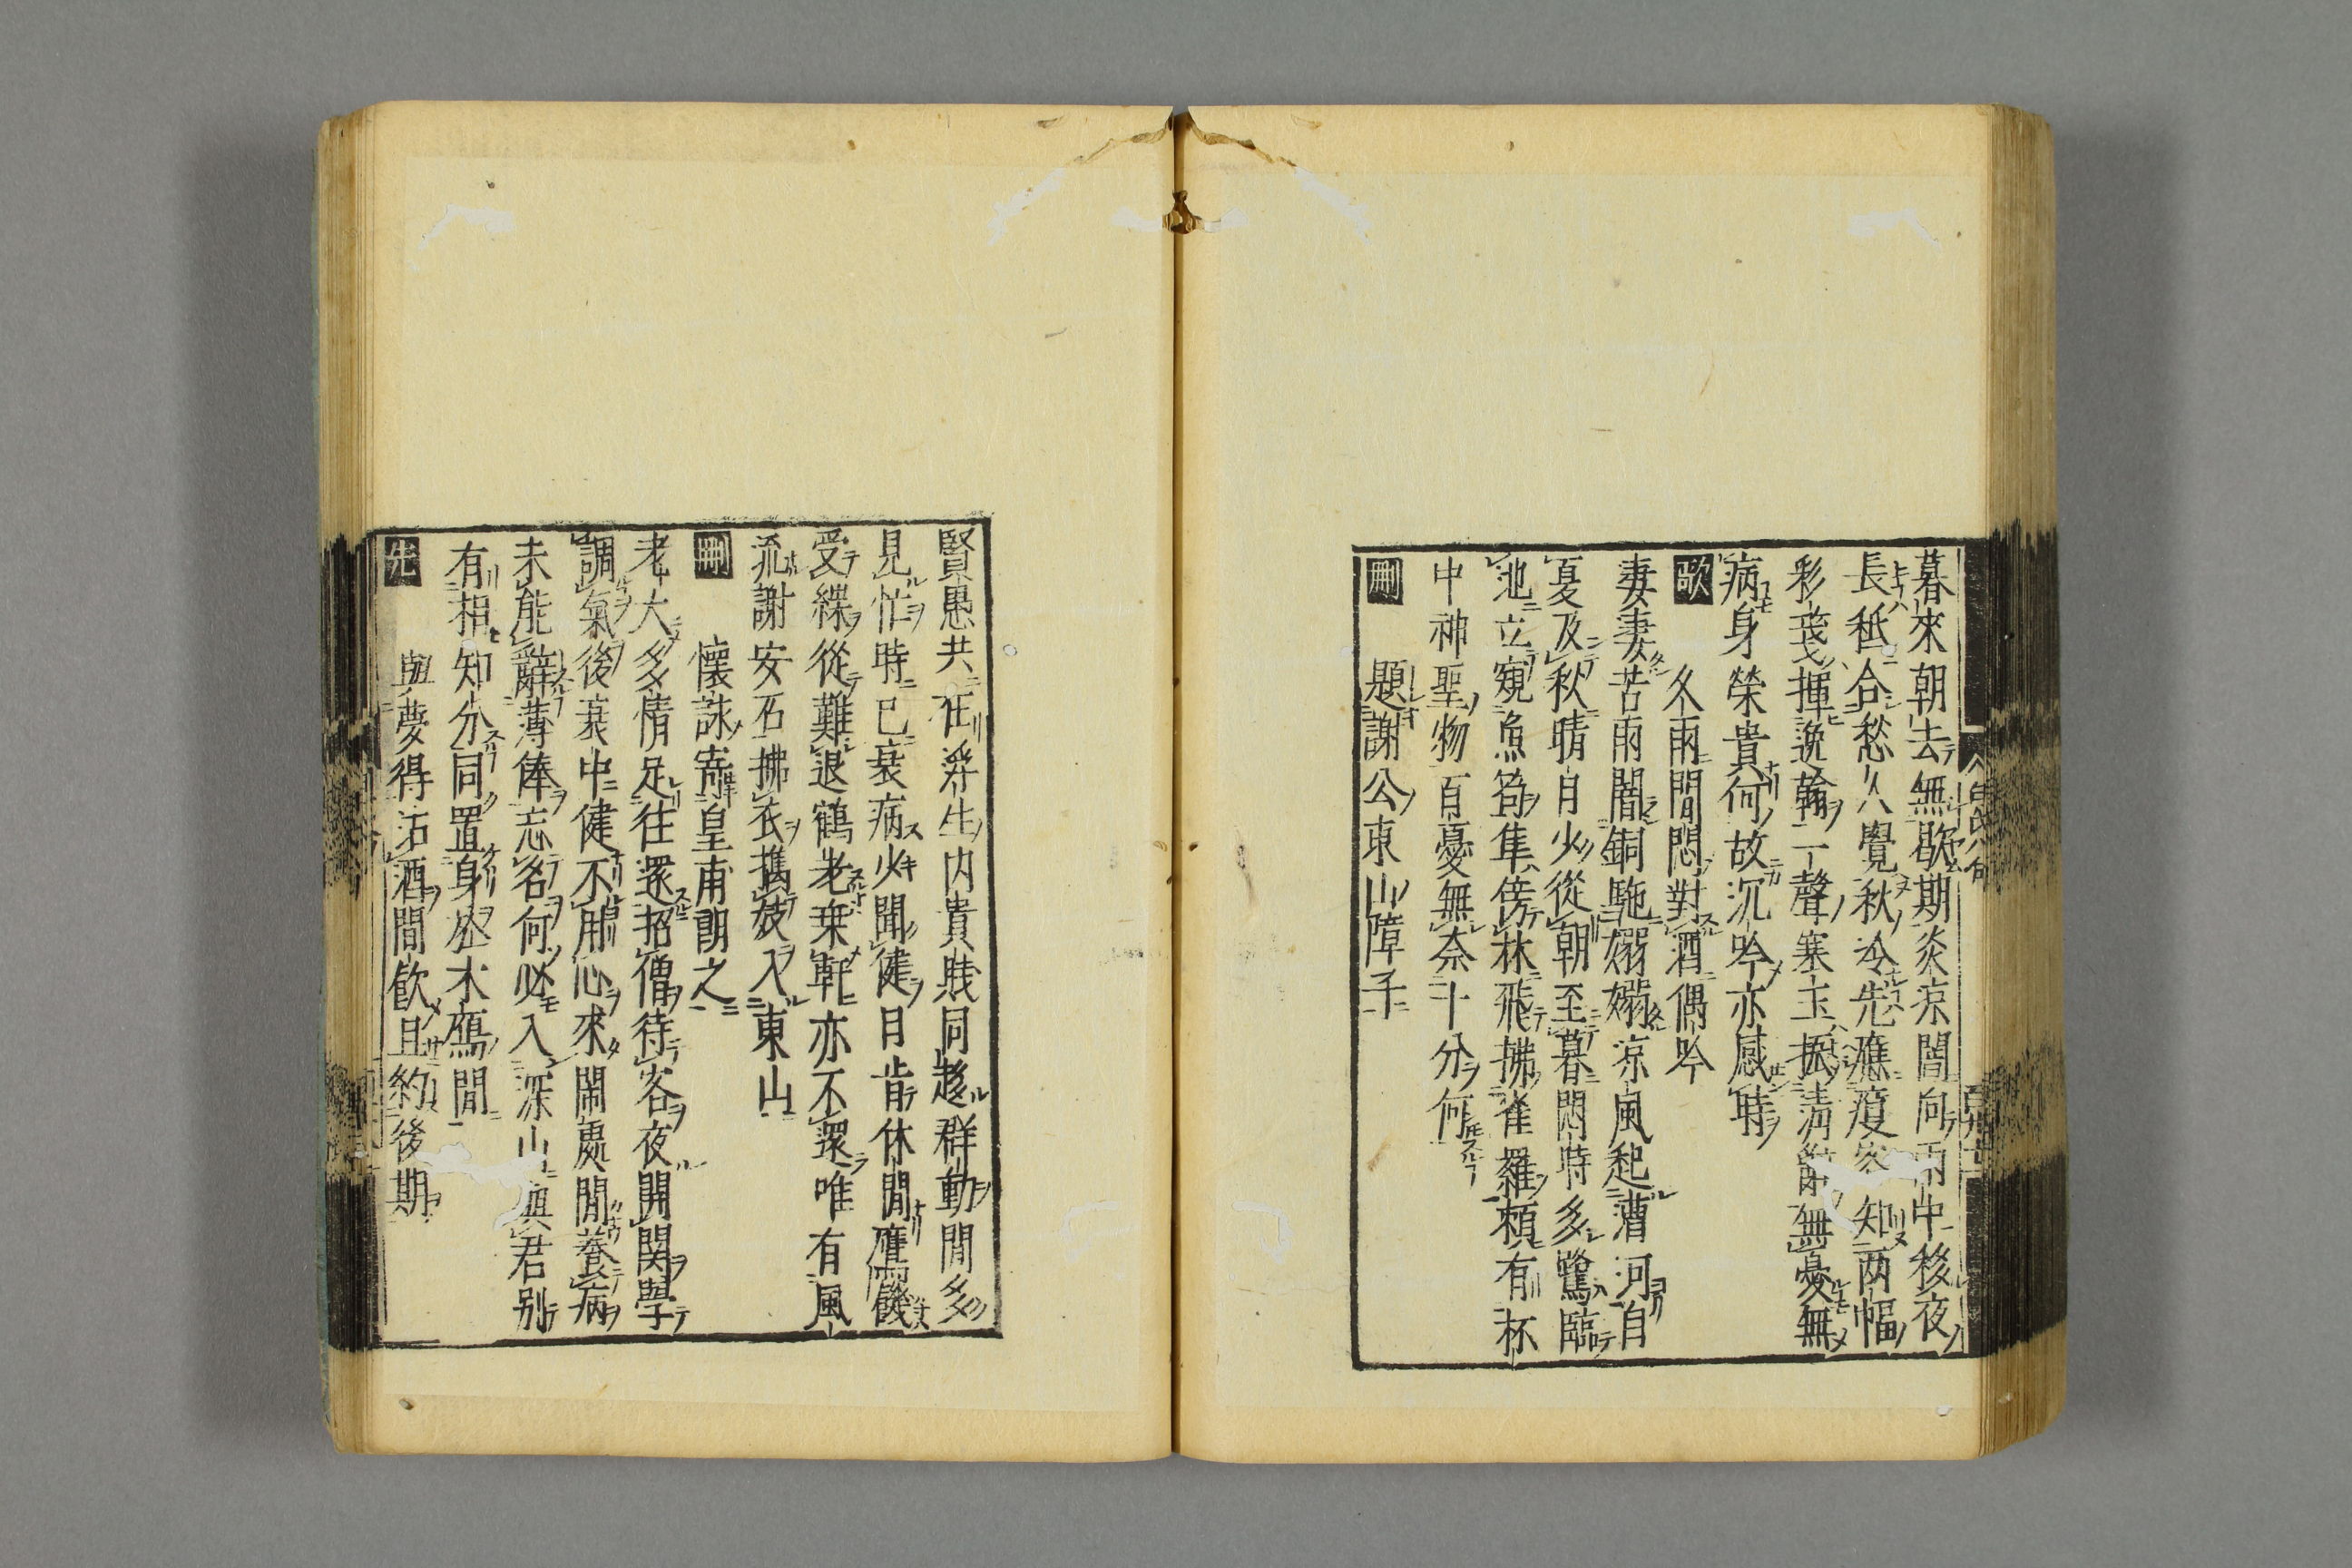 暮來朝去無歇期炎凉闇向雨中移夜
長秪合愁人覺秋冷先應瘦客知两幅
彩戔揮逸翰一聲寒玉振淸辭無憂無
病身榮貴何故沉吟亦感時
歌
久雨閒悶對酒偶吟
凄凄苦雨闇銅駞嫋嫋凉風起漕河自
夏及秋晴日少從朝至暮悶時多鷺臨
池立窺魚笱隼傍林飛拂雀羅頼有杯
中神聖物百憂無奈十分何
刪
題謝公東山障子
賢愚共在浮生内貴賤同趍群動閒多
見忙時已衰病少聞健日肯休閒鷹飢
受緤從難退鶴老乗軒亦不還唯有風
流謝安石拂衣攜妓入東山
刪
懷
寄皇甫朗之
老大多情足往還招僧待客夜開関學
調氣後衰中健不用心來閙處閒養病
未能辭薄俸忘名何必入深山與君别
有相知分同置身於木鴈閒
先
與夢得沽酒閒飲且約後期